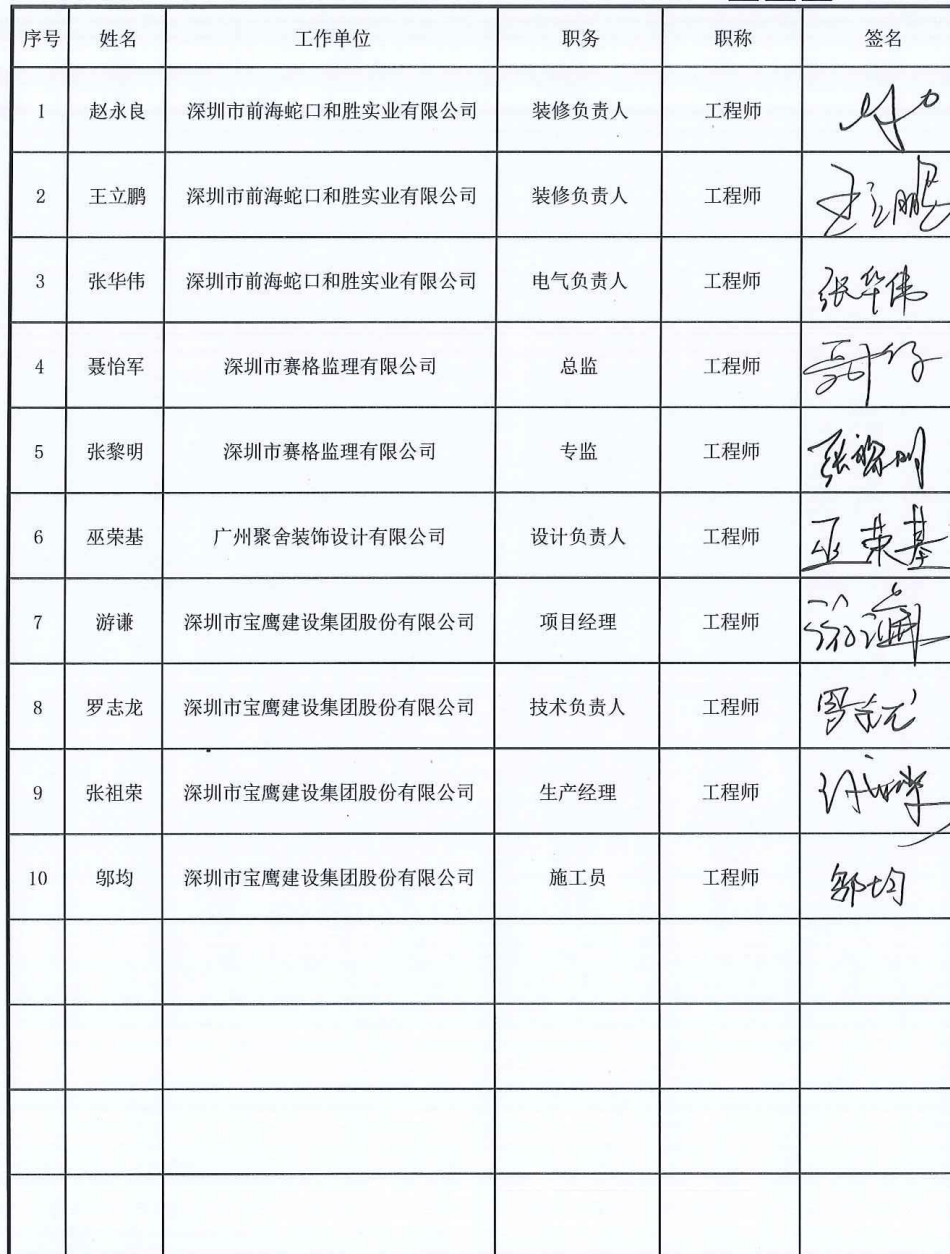 序号 姓名 工作单位 职务 职称 签名
1 赵永良 深圳市前海蛇口和胜实业有限公司 装修负责人 工程师
2 王立鹏 深圳市前海蛇口和胜实业有限公司 装修负责人 工程师 王立鹏
3 张华伟 深圳市前海蛇口和胜实业有限公司 电气负责人 工程师 张华伟
4 聂怡军 深圳市赛格监理有限公司 总监 工程师
5 张黎明 深圳市赛格监理有限公司 专监 工程师 张黎明
6 巫荣基 广州聚舍装饰设计有限公司 设计负责人 工程师 巫荣基
7 游谦 深圳市宝鹰建设集团股份有限公司 项目经理 工程师
8 罗志龙 深圳市宝鹰建设集团股份有限公司 技术负责人 工程师 罗志龙
9 张祖荣 深圳市宝鹰建设集团股份有限公司 生产经理 工程师
10 邬均 深圳市宝鹰建设集团股份有限公司 施工员 工程师 邬均